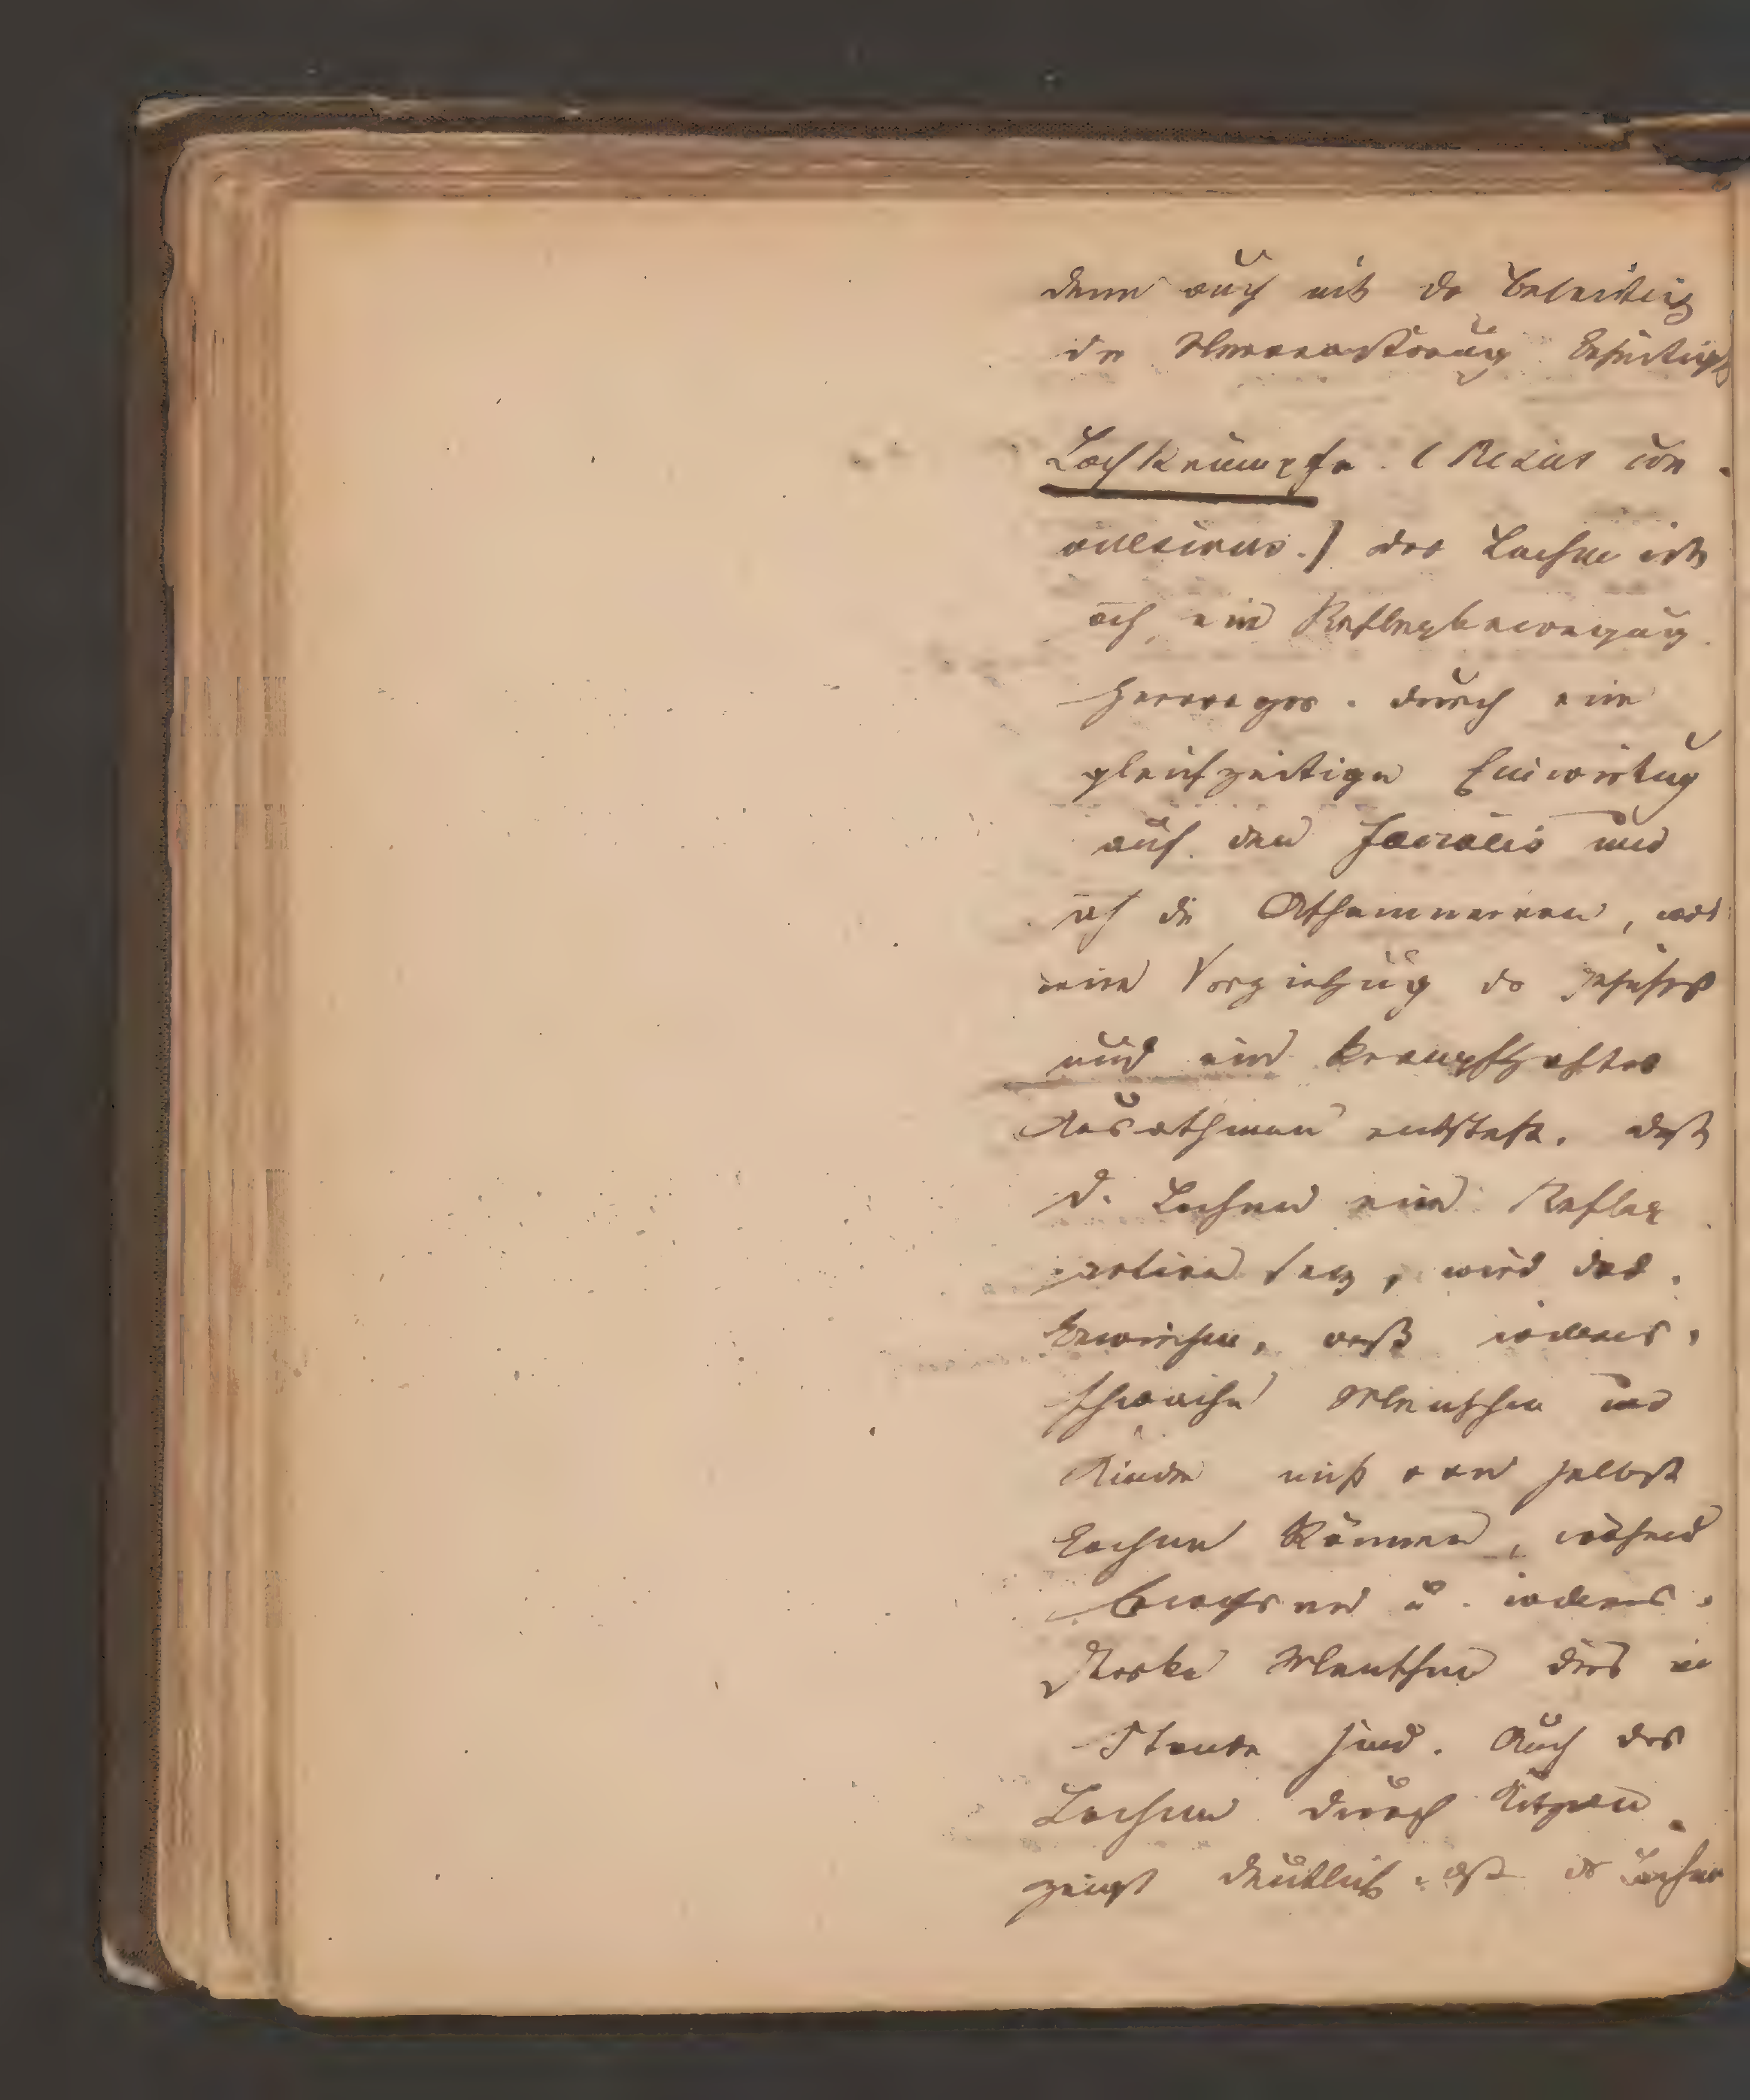 dann auch mit der Beseitig
der Nervenstörung beseitigt
Lachkrämpfe. (Risus con-
vulsivus.) das Lachen ist
auch ein Reflexbewegung
hervorger. durch eine
gleichzeitige Einwirkung
auf den Facialis und
auf die Athemnerven, wo
eine Verziehung des Gesichts
und ein krampfhaftes
Ausathmen entsteht. daß
d. Lachen eine Reflex
action sey, wird dad.
bewiesen, daß willens-
schwache Menschen und
Kinder nicht von selbst
lachen können, während
Erwachsene u. willens-
starke Menschen dies im
Stande sind. Auch das
Lachen durch Kitzeln
zeigt deutlich, daß das Lachen